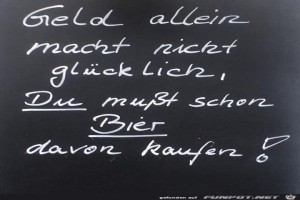 Geld allein
macht nicht
glücklich,
Du mußt schon
Bier
davon kaufen!
gefunden auf FUNPOT.NET